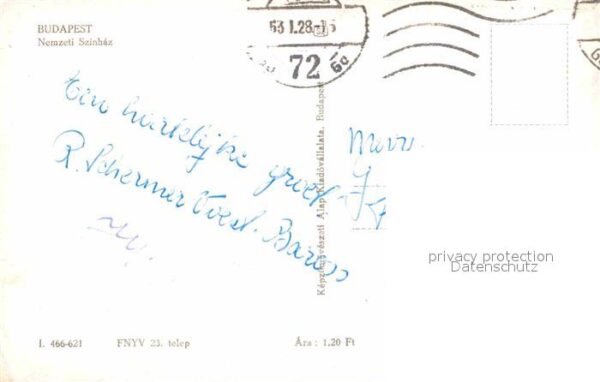 BUDAPEST
Nemzeti Színház
63 I.28-15
72
Een hartelijke groet
R. Schermer Voest-Baross
Mevr.
Képzőművészeti Alap Kiadóvállalata, Budapest
privacy protection
Datenschutz
I. 466-621 FNYV 23. telep Ára: 1.20 Ft